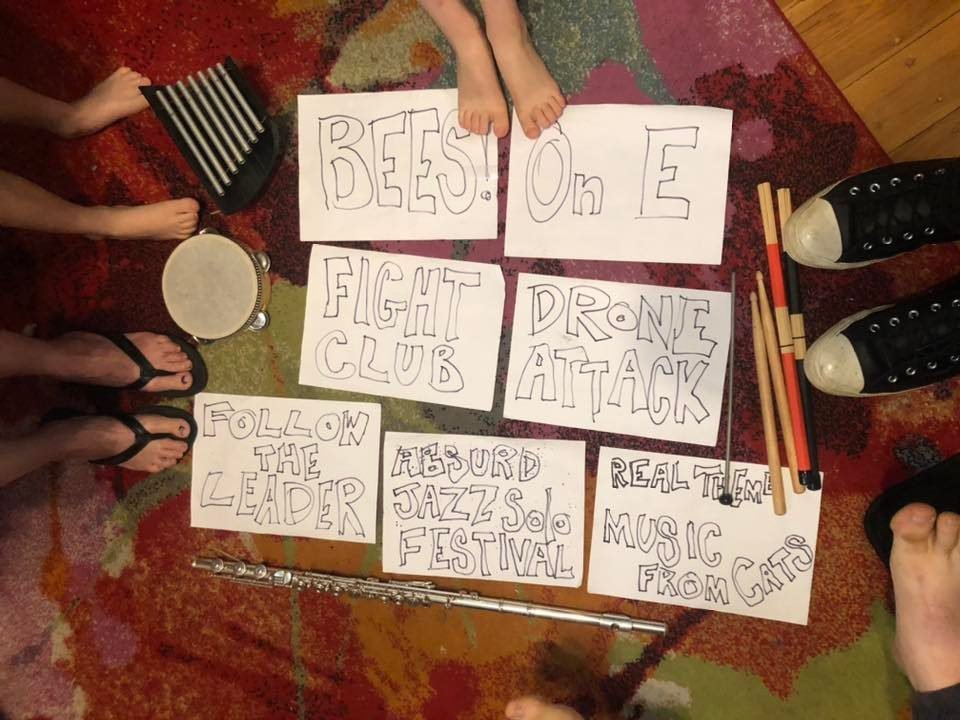 BEES!
On E
FIGHT
CLUB
DRONE
ATTACK
FOLLOW
THE
LEADER
ABSURD
JAZZ Solo
FESTIVAL
REAL THEME
MUSIC
FROM CATS